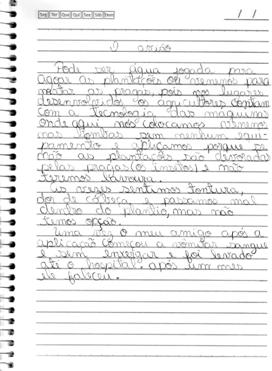 Seg Ter Qua Qui Sex Sáb Dom
/ /
O avião
Pode ser água jogada para
agoar as plantações ou venenos para
matar as pragas, pois nos lugares
desenvolvidos os agricultores contam
com a tecnologia das máquinas
onde aqui nós colocamos venenos
nas bombas sem nenhum equi-
pamento e aplicamos porque se
não as plantações são devoradas
pelas pragas (os insetos) e não
teremos lavoura.
Às vezes sentimos tontura,
dor de cabeça e passamos mal
dentro do plantio, mas não
temos opção.
Uma vez o meu amigo após a
aplicação começou a vômitar sangue
e sem enxergar e foi levado
até o hospital. após um mês
ele faleceu.